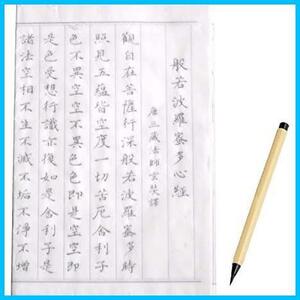 般若波羅蜜多心經
唐三藏法師玄奘譯
觀自在菩薩行深般若波羅蜜多時
照見五蘊皆空度一切苦厄舍利子
色不異空空不異色色即是空空即
是色受想行識亦復如是舍利子是
諸法空相不生不滅不垢不淨不增